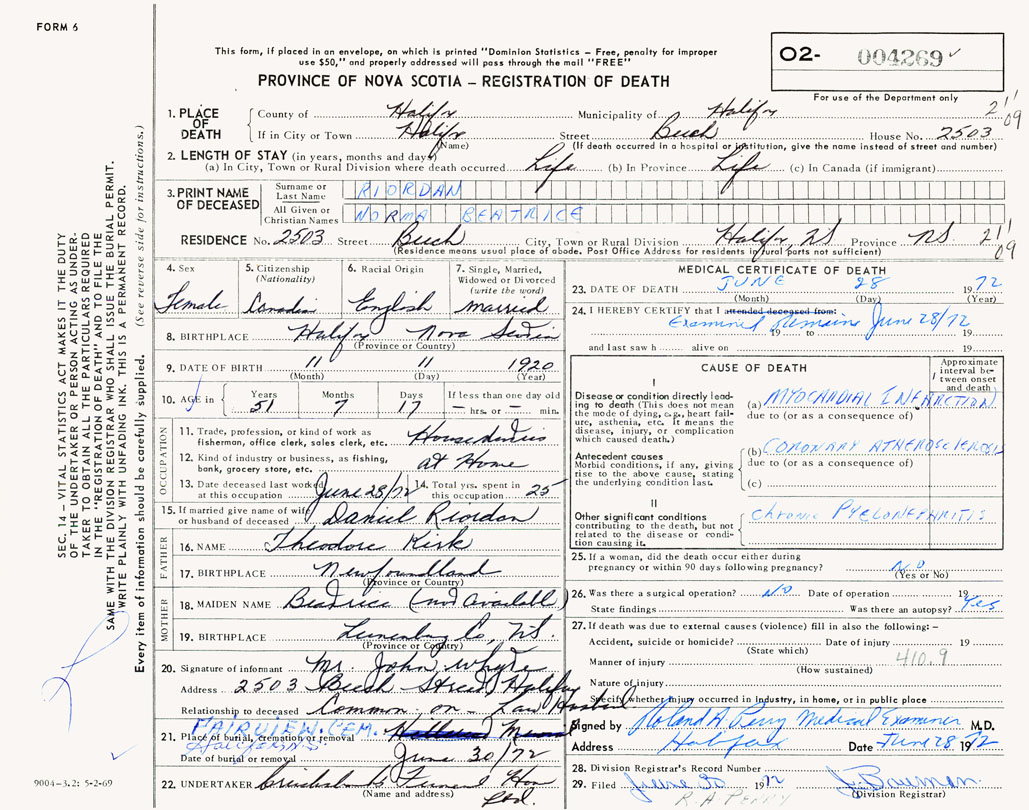 FORM 6
This form, if placed in an envelope, on which is printed "Dominion Statistics – Free, penalty for improper
use $50," and properly addressed will pass through the mail "FREE"
PROVINCE OF NOVA SCOTIA – REGISTRATION OF DEATH
O2- 004269
For use of the Department only
1. PLACE OF DEATH
County of Halifx Municipality of Halifx
If in City or Town Halifx Street Buch House No. 2503
(Name) (If death occurred in a hospital or institution, give the name instead of street and number)
211
09
2. LENGTH OF STAY (in years, months and days)
(a) In City, Town or Rural Division where death occurred Life (b) In Province Life (c) In Canada (if immigrant)
3. PRINT NAME OF DECEASED
Surname or Last Name RIORDAN
All Given or Christian Names NORMA BEATRICE
RESIDENCE No. 2503 Street Buch City, Town or Rural Division Halifx, NS Province NS. 211
09
(Residence means usual place of abode. Post Office Address for residents in rural parts not sufficient)
4. Sex Female
5. Citizenship (Nationality) Canadian
6. Racial Origin English
7. Single, Married, Widowed or Divorced (write the word) married
8. BIRTHPLACE Halifx Nova Scotia
(Province or Country)
9. DATE OF BIRTH 11 11 1920
(Month) (Day) (Year)
10. AGE in Years 51 Months 7 Days 17 If less than one day – hrs. or – min.
OCCUPATION
11. Trade, profession, or kind of work as fisherman, office clerk, sales clerk, etc. Houseduties
12. Kind of industry or business, as fishing, bank, grocery store, etc. at Home
13. Date deceased last worked at this occupation June 28/72 14. Total yrs. spent in this occupation 25
15. If married give name of wife or husband of deceased Daniel Riordan
FATHER
16. NAME Theodore Kirk
17. BIRTHPLACE Newfoundland
(Province or Country)
MOTHER
18. MAIDEN NAME Beatrice (not available)
19. BIRTHPLACE Lunenburg Co, NS.
(Province or Country)
20. Signature of informant Mr. John Whyte
Address 2503 Buch Street, Halifx
Relationship to deceased Common-on-Law Husband
21. Place of burial, cremation or removal FAIRVIEW. CEM.
Halifax NS
Date of burial or removal June 30/72
22. UNDERTAKER Funeral Home
(Name and address) Ltd.
MEDICAL CERTIFICATE OF DEATH
23. DATE OF DEATH JUNE 28 1972
(Month) (Day) (Year)
24. I HEREBY CERTIFY that I attended deceased from:
Examined Remains June 28/72
19 to 19
and last saw h alive on 19
CAUSE OF DEATH
Approximate interval between onset and death
I
Disease or condition directly leading to death (This does not mean the mode of dying, e.g., heart failure, asthenia, etc. It means the disease, injury, or complication which caused death.)
(a) MYOCARDIAL INFARCTION
due to (or as a consequence of)
Antecedent causes
Morbid conditions, if any, giving rise to the above cause, stating the underlying condition last.
(b) CORONARY ATHEROSCLEROSIS
due to (or as a consequence of)
(c)
II
Other significant conditions
contributing to the death, but not related to the disease or condition causing it.
Chronic PYELONEPHRITIS
25. If a woman, did the death occur either during pregnancy or within 90 days following pregnancy? NO
(Yes or No)
26. Was there a surgical operation? NO Date of operation 19
State findings Was there an autopsy? Yes
27. If death was due to external causes (violence) fill in also the following: –
Accident, suicide or homicide? Date of injury 19
(State which)
Manner of injury 410.9
(How sustained)
Nature of injury
Specify whether injury occurred in industry, in home, or in public place
Signed by Roland A Perry Medical Examiner M.D.
Address Halifax Date June 28 1972
28. Division Registrar's Record Number
29. Filed June 30 1972 J. Bauman
(Division Registrar)
R. A. PERRY
SEC. 14 – VITAL STATISTICS ACT MAKES IT THE DUTY
OF THE UNDERTAKER OR PERSON ACTING AS UNDER-
TAKER TO OBTAIN ALL THE PARTICULARS REQUIRED
IN THE "REGISTRATION OF DEATH" AND TO FILE THE
SAME WITH THE DIVISION REGISTRAR WHO SHALL ISSUE THE BURIAL PERMIT.
WRITE PLAINLY WITH UNFADING INK. THIS IS A PERMANENT RECORD.
Every item of information should be carefully supplied. (See reverse side for instructions.)
9004-3.2: 5-2-69